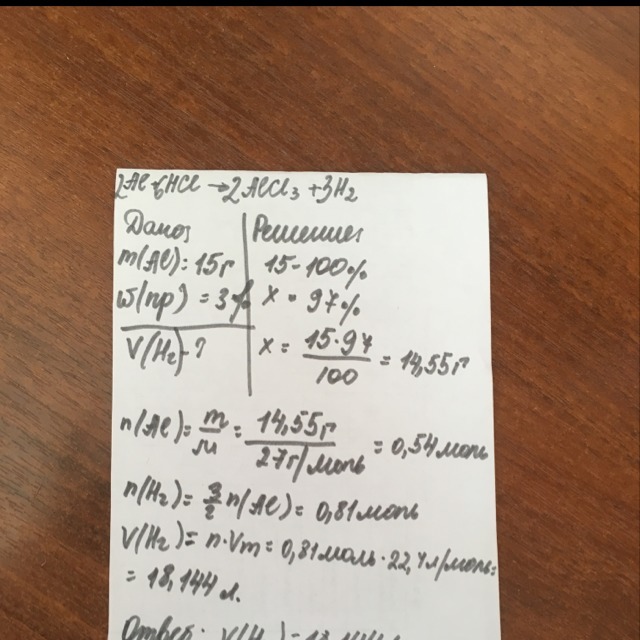 2Al+6HCl → 2AlCl₃ + 3H₂
Дано: Решение:
m(Al) = 15г 15 - 100%
ω(пр) = 3% x - 97%
V(H₂) - ? x = 15·97/100 = 14,55г
n(Al) = m/M = 14,55г/27г/моль = 0,54 моль
n(H₂) = 3/2 n(Al) = 0,81 моль
V(H₂) = n·Vm = 0,81 моль · 22,4 л/моль =
= 18,144 л.
Ответ: V(H₂) = 18,144 л